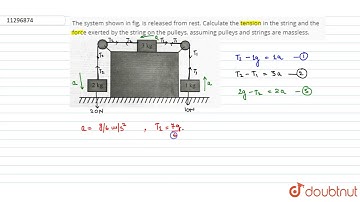 11296874
The system shown in fig. is released from rest. Calculate the tension in the string and the
force exerted by the string on the pulleys. assuming pulleys and strings are massless.
a
T₂ T₂ 3 kg T₁ T₁
T₂ T₁
a 2 kg 1 kg a
20N 10N
T₁ - 1g = 1a ①
T₂ - T₁ = 3a ②
2g - T₂ = 2a ③
a = g/6 m/s² , T₁ = 7g/6
doubtnut